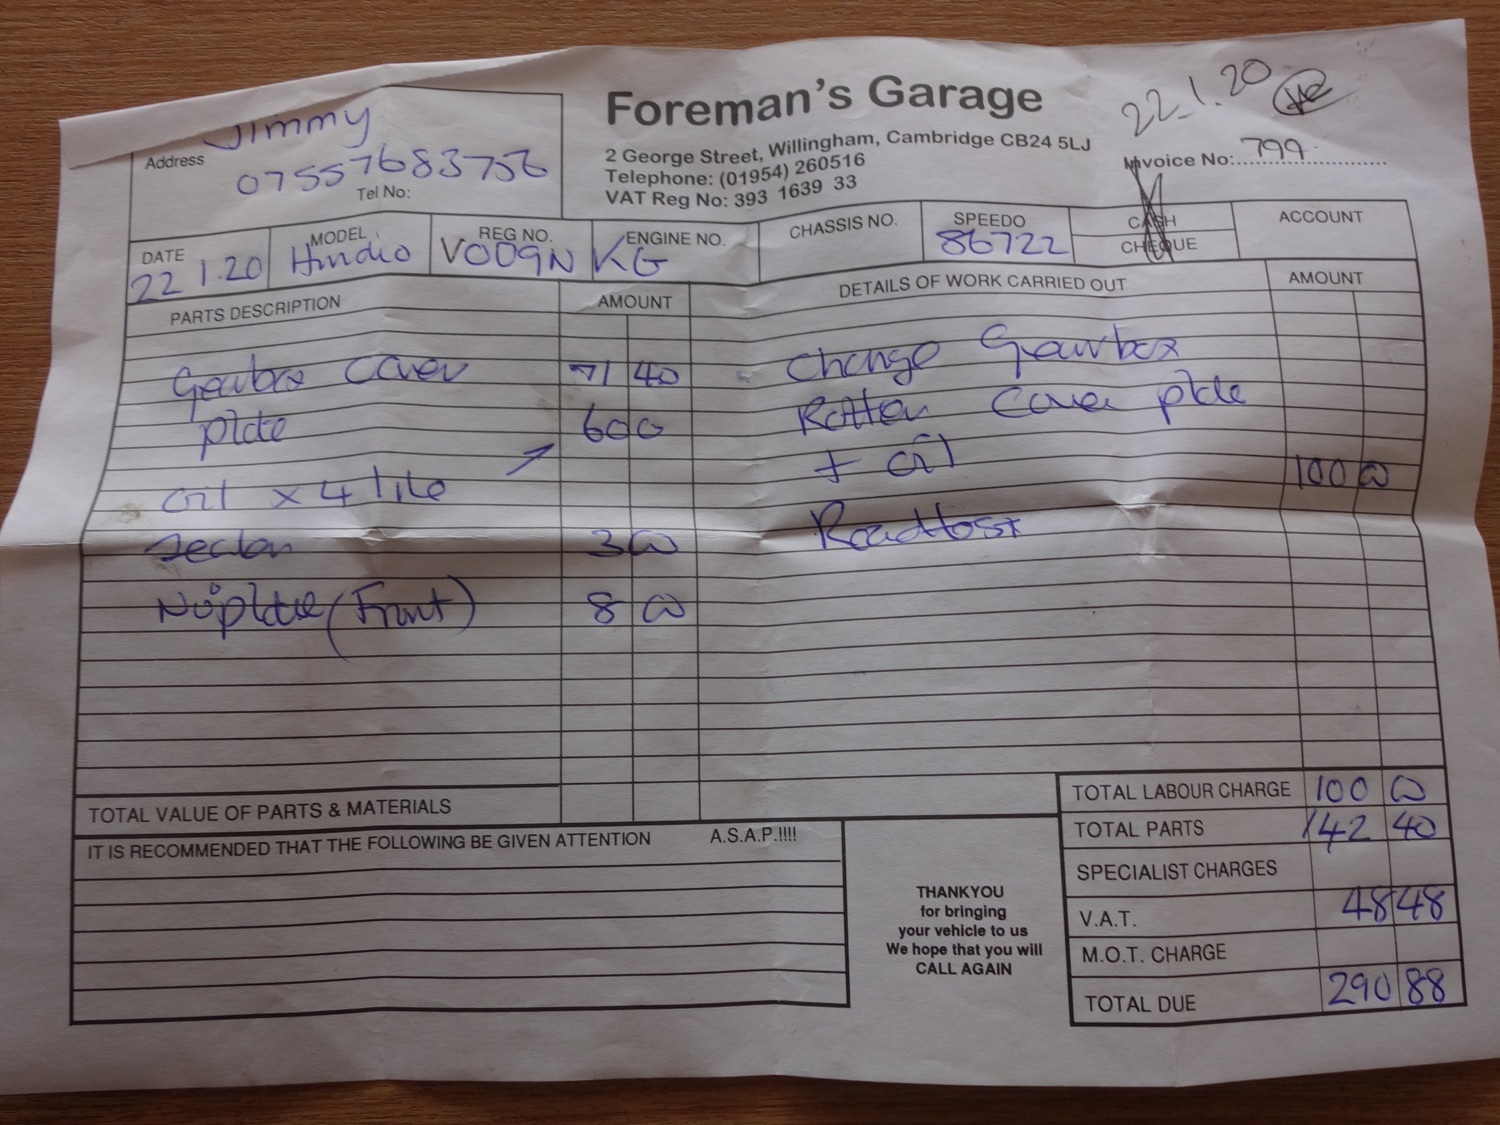 Foreman's Garage
2 George Street, Willingham, Cambridge CB24 5LJ
Telephone: (01954) 260516
VAT Reg No: 393 1639 33
22.1.20
Invoice No: 799
Jimmy
Address
07557683756
Tel No:
DATE 22 1.20
MODEL Hindio
REG NO. VO09N
ENGINE NO. KG
CHASSIS NO.
SPEEDO 86722
CASH
CHEQUE
ACCOUNT
PARTS DESCRIPTION AMOUNT
Gearbox Cover 71 40
plate 60 0
oil x 4 litre
3 00
No plate (Front) 8 00
TOTAL VALUE OF PARTS & MATERIALS
DETAILS OF WORK CARRIED OUT AMOUNT
Change Gearbox
Rotten Cover plate
+ oil 100 00
Roadtest
IT IS RECOMMENDED THAT THE FOLLOWING BE GIVEN ATTENTION A.S.A.P.!!!!
THANKYOU
for bringing
your vehicle to us
We hope that you will
CALL AGAIN
TOTAL LABOUR CHARGE 100 00
TOTAL PARTS 142 40
SPECIALIST CHARGES
V.A.T. 48 48
M.O.T. CHARGE
TOTAL DUE 290 88